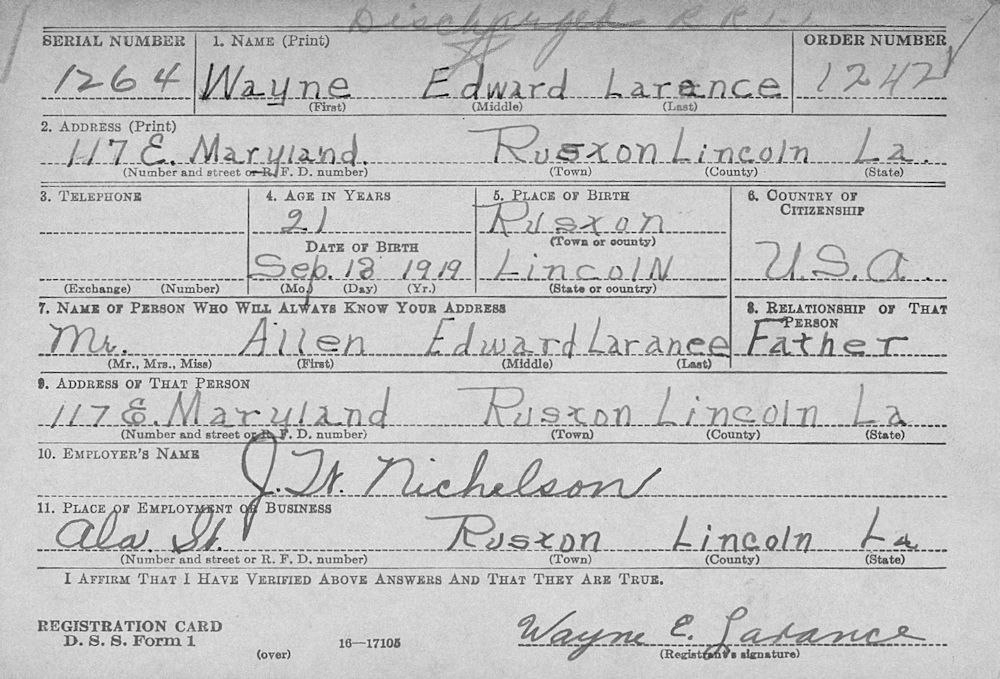 Discharged
SERIAL NUMBER 1. NAME (Print) ORDER NUMBER
1264 Wayne Edward Larance 1242
(First) (Middle) (Last)
2. ADDRESS (Print)
117 E. Maryland. Rusxon Lincoln La.
(Number and street or R. F. D. number) (Town) (County) (State)
3. TELEPHONE 4. AGE IN YEARS 5. PLACE OF BIRTH 6. COUNTRY OF
CITIZENSHIP
21 Rusxon
DATE OF BIRTH (Town or county)
Sep. 18 1919 LincolN U.S.A.
(Exchange) (Number) (Mo.) (Day) (Yr.) (State or country)
7. NAME OF PERSON WHO WILL ALWAYS KNOW YOUR ADDRESS 8. RELATIONSHIP OF THAT
PERSON
Mr. Allen Edward Larance Father
(Mr., Mrs., Miss) (First) (Middle) (Last)
9. ADDRESS OF THAT PERSON
117 E. Maryland Rusxon Lincoln La
(Number and street or R. F. D. number) (Town) (County) (State)
10. EMPLOYER'S NAME
J. W. Nichelson
11. PLACE OF EMPLOYMENT OR BUSINESS
Ala. St. Rusxon Lincoln La
(Number and street or R. F. D. number) (Town) (County) (State)
I AFFIRM THAT I HAVE VERIFIED ABOVE ANSWERS AND THAT THEY ARE TRUE.
REGISTRATION CARD
D. S. S. Form 1 16—17105 Wayne E. Larance
(over) (Registrant's signature)